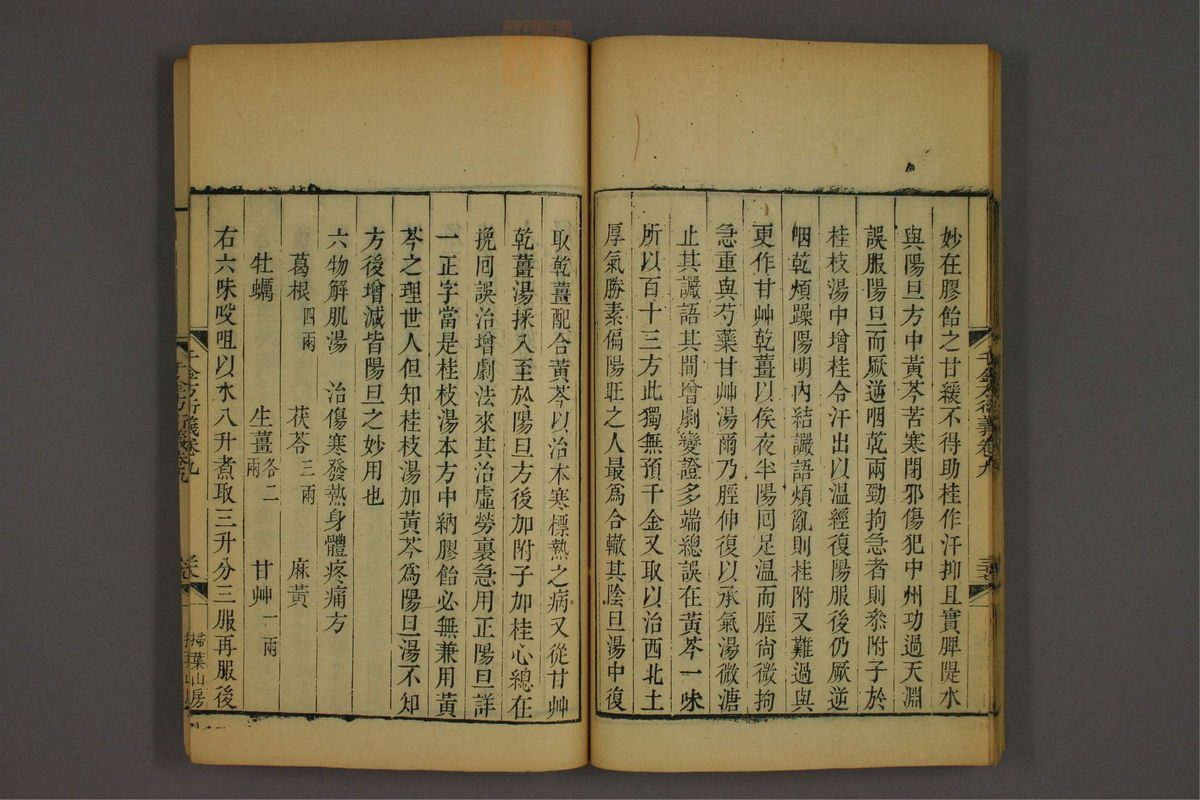 妙在膠飴之甘緩不得助桂作汗抑且實脾隄水
與陽旦方中黃芩苦寒閉邪傷犯中州功過天淵
誤服陽旦而厥逆咽乾兩脛拘急者則叅附子於
桂枝湯中增桂令汗出以溫經復陽服後仍厥逆
咽乾煩躁陽明內結讝語煩亂則桂附又難過與
更作甘艸乾薑以俟夜半陽回足溫而脛尙微拘
急重與芍藥甘艸湯爾乃脛伸復以承氣湯微溏
止其讝語其間增劇變證多端總誤在黃芩一味
所以百十三方此獨無預千金又取以治西北土
厚氣勝素偏陽旺之人最爲合轍其陰旦湯中復
取乾薑配合黃芩以治本寒標熱之病又從甘艸
乾薑湯採入至於陽旦方後加附子加桂心總在
挽回誤治增劇法來其治虛勞裏急用正陽旦詳
一正字當是桂枝湯本方中納膠飴必無兼用黃
芩之理世人但知桂枝湯加黃芩爲陽旦湯不知
方後增減皆陽旦之妙用也
六物解肌湯 治傷寒發熱身體疼痛方
葛根四兩 茯苓三兩 麻黃
牡蠣 生薑各二兩 甘艸一兩
右六味㕮咀以水八升煮取三升分三服再服後
千金方衍義卷九
掃葉山房